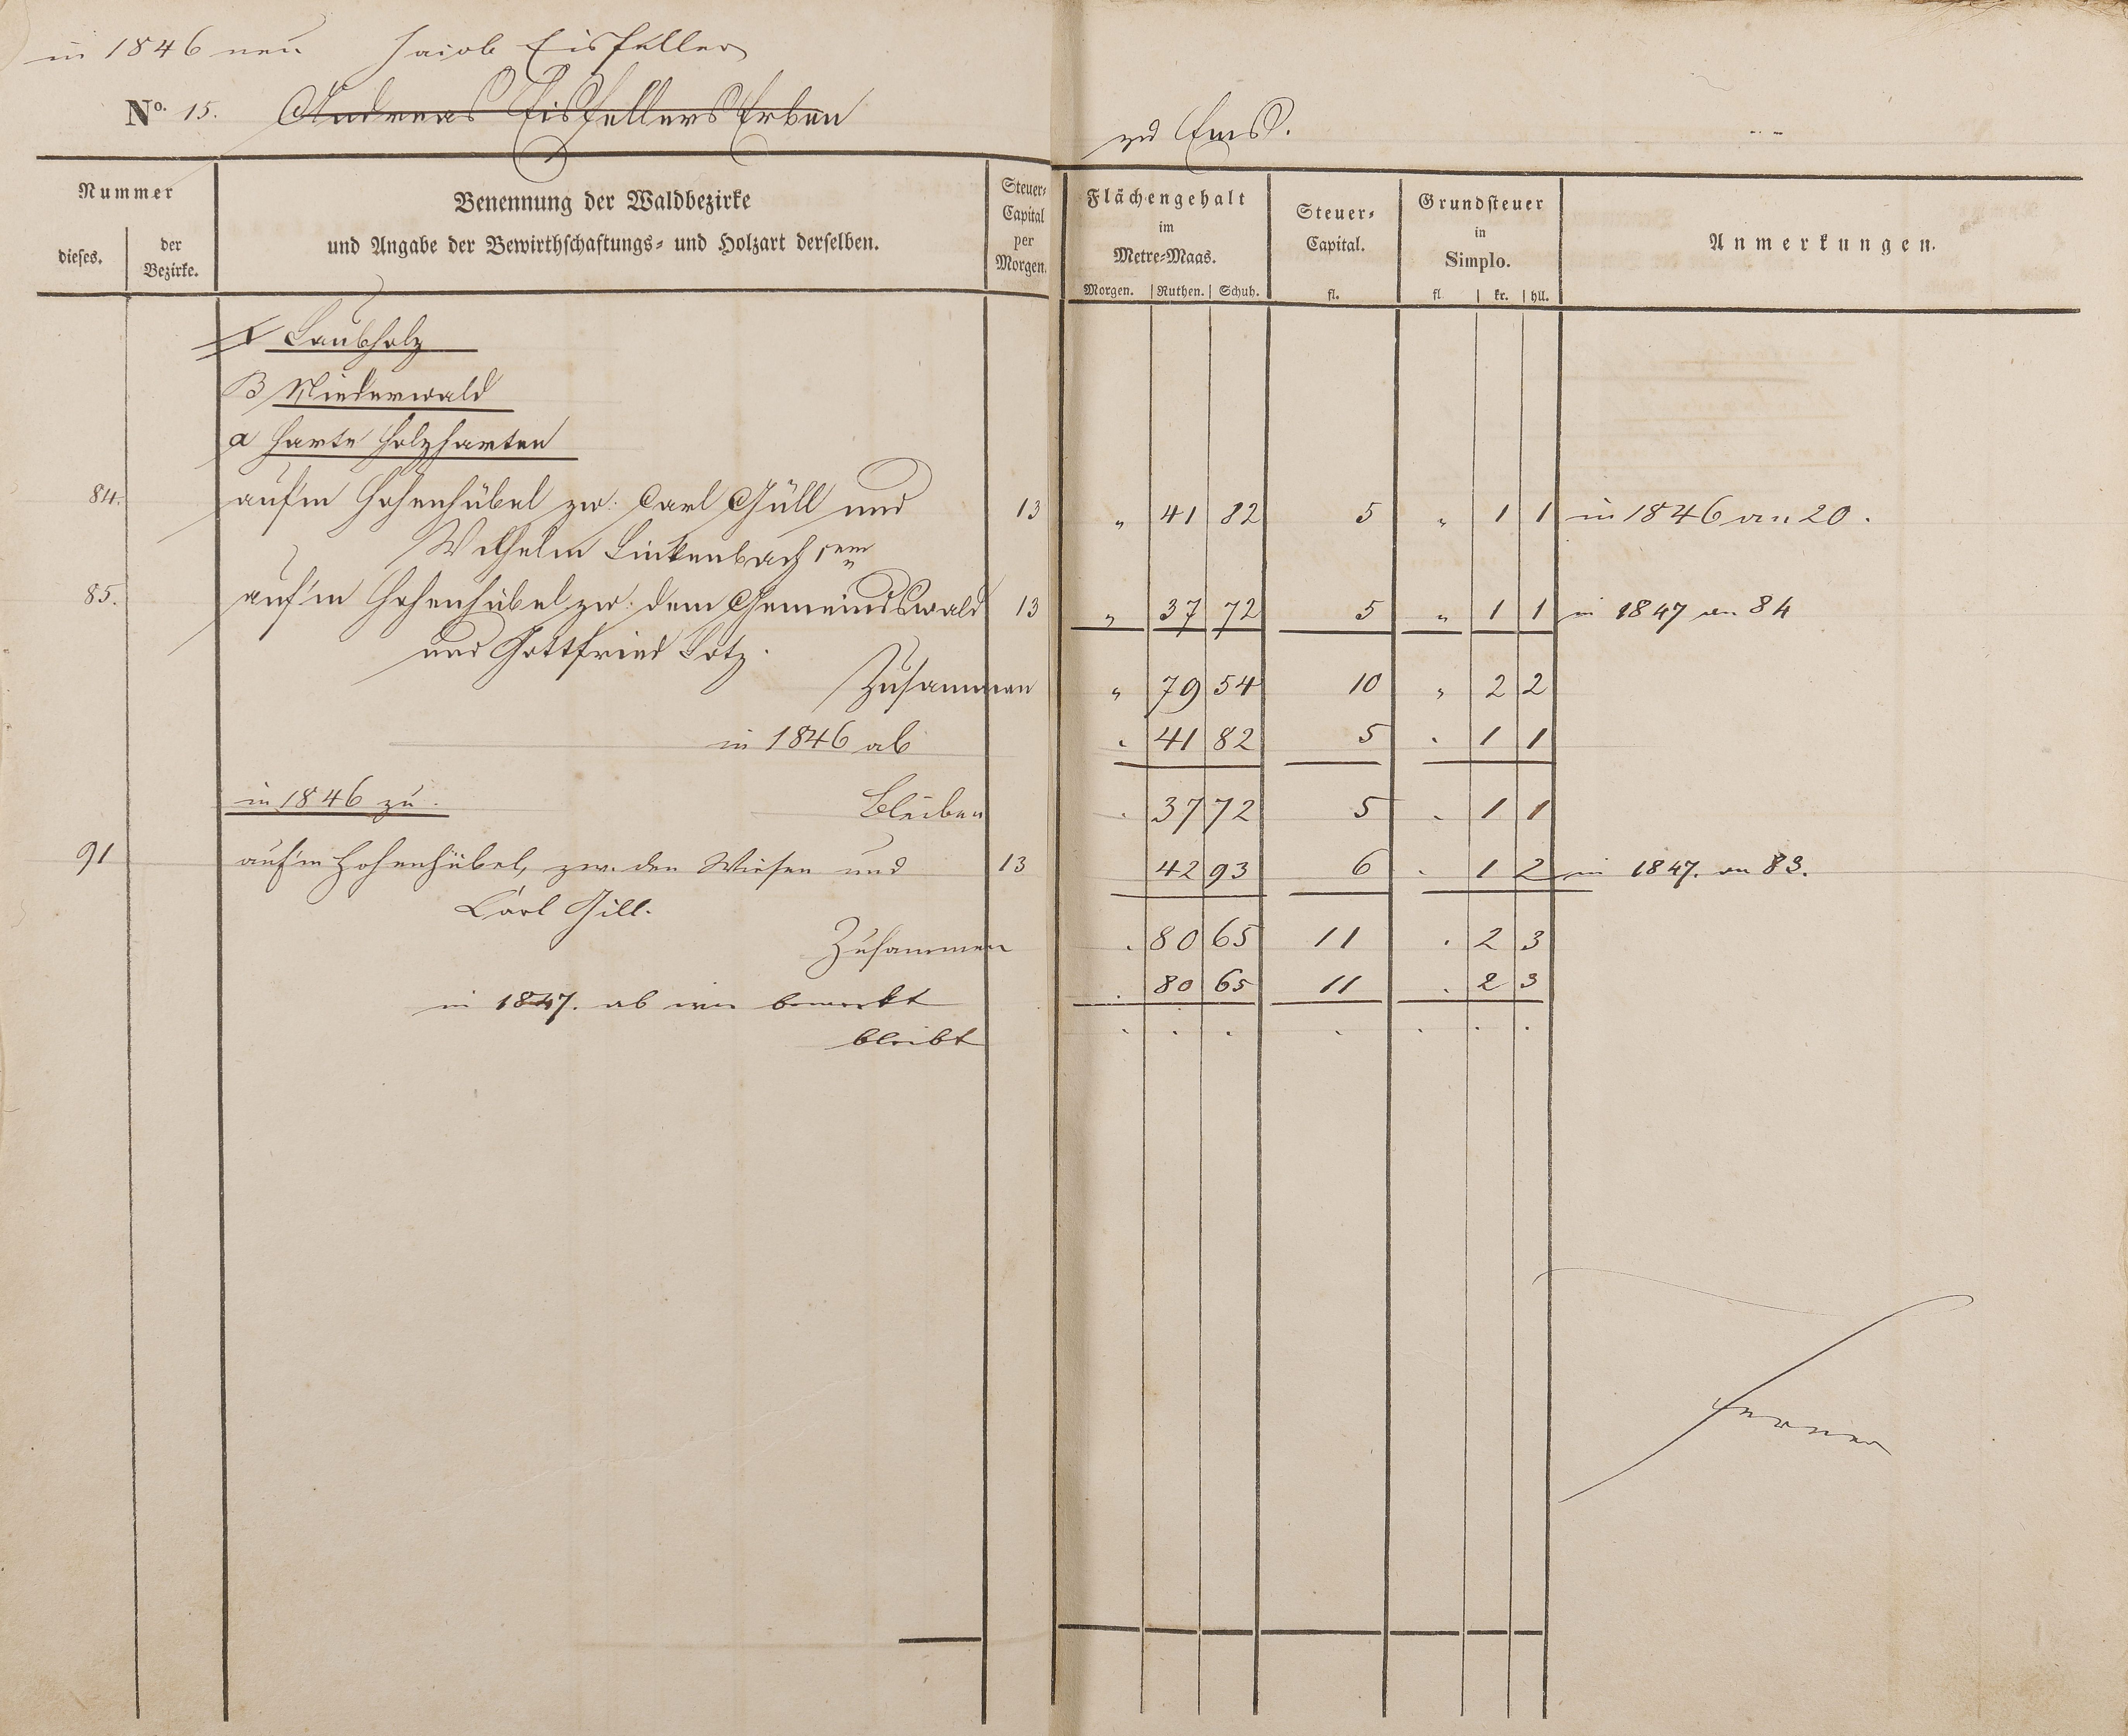 in 1846 neu Jacob Eisfeller
No. 15. Andreas Eisfellers Erben zu Ems.
Nummer
dieses.
der Bezirke.
Benennung der Waldbezirke
und Angabe der Bewirthschaftungs- und Holzart derselben.
Steuer-
Capital
per
Morgen.
Flächengehalt
im
Metre-Maas.
Morgen. Ruthen. Schuh.
Steuer-
Capital.
fl.
Grundsteuer
in
Simplo.
fl kr. hll.
Anmerkungen.
Laubholz
B Niederwald
a harte Holzharten
84. auf'm Hohenhübel zw. Carl Güll und 13 " 41 82 5 " 1 1 in 1846 an 20.
Wilhelm Linkenbach sen
85. auf'm Hohenhübel zw. dem Gemeindswald 13 " 37 72 5 " 1 1 in 1847 an 84
und Gottfried Lotz.
Zusammen " 79 54 10 " 2 2
in 1846 ab . 41 82 5 . 1 1
in 1846 zu. Bleiben . 37 72 5 . 1 1
91 auf'm Hohenhübel, zw. den Wiesen und 13 42 93 6 . 1 2 in 1847. an 83.
Carl Gill.
Zusammen . 80 65 11 . 2 3
in 1847. ab wie bemerkt . 80 65 11 . 2 3
bleibt . . . . . . .